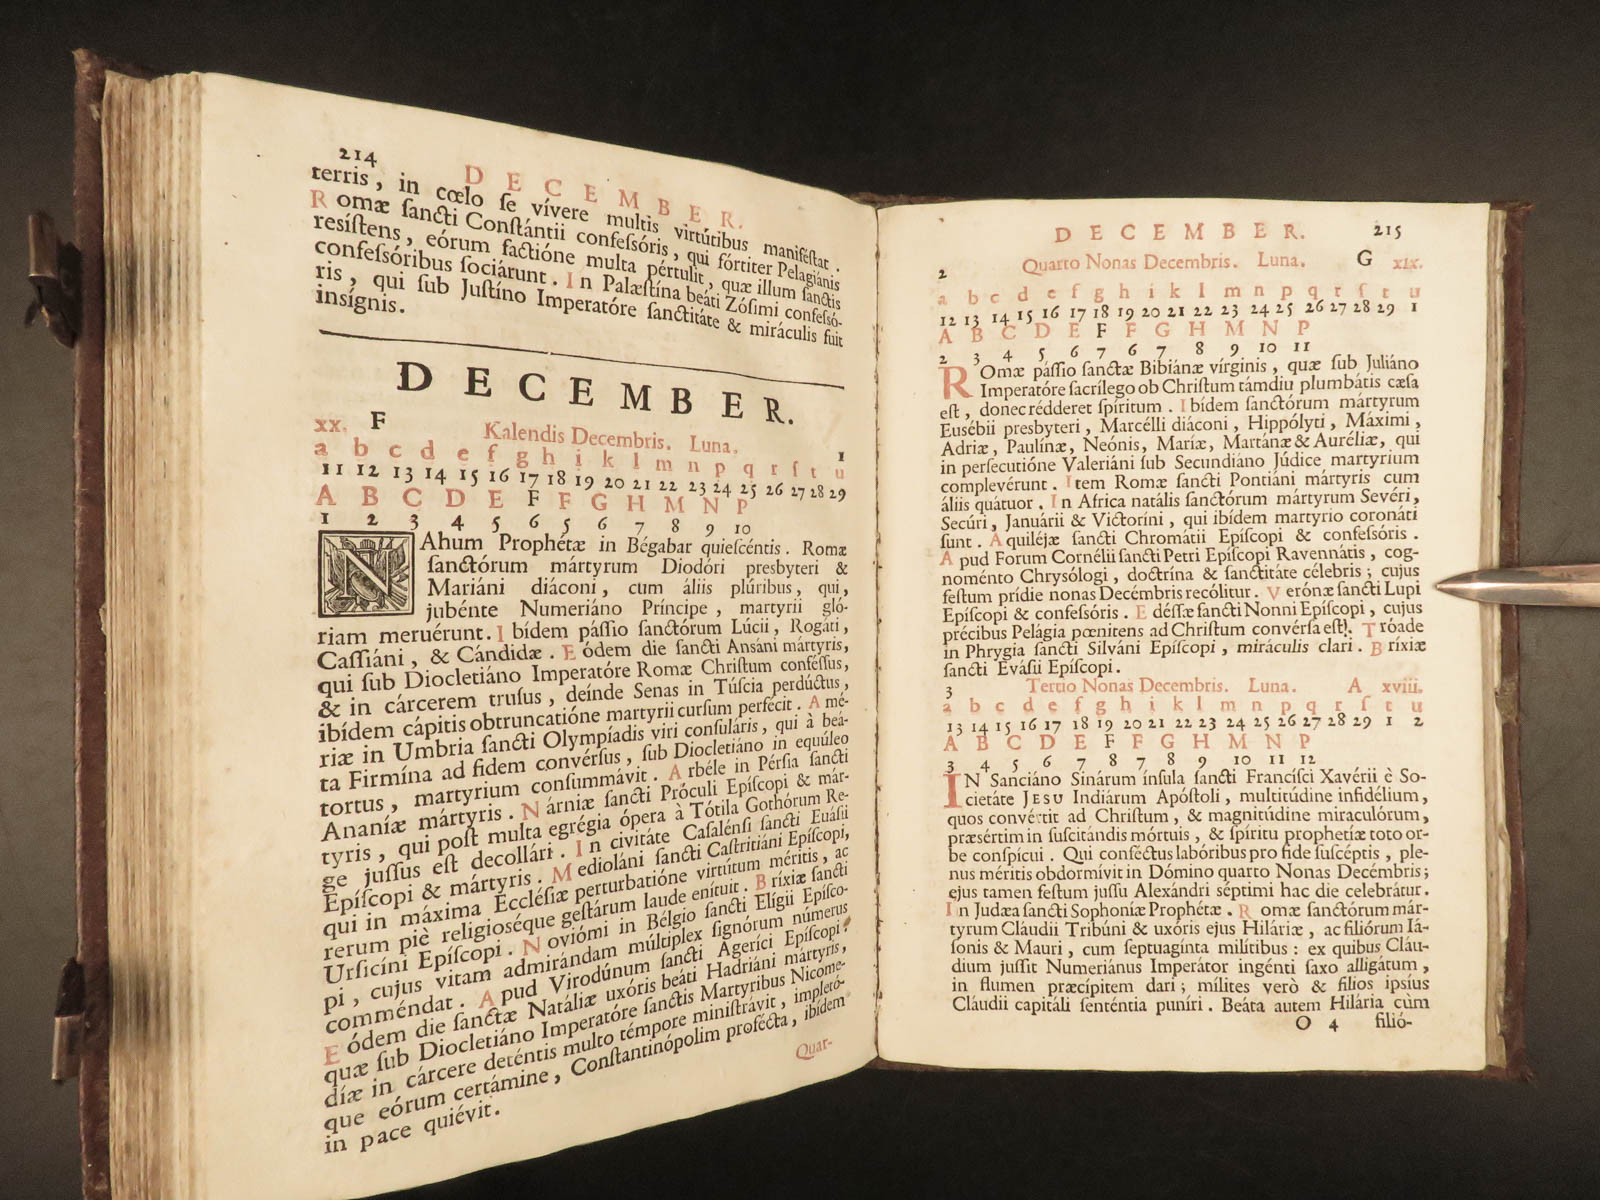 214
DECEMBER.
terris, in cœlo se vívere multis virtútibus maniféſtat.
Romæ ſancti Conſtántii confeſſóris, qui fórtiter Pelagiánis
resíſtens, eórum factióne multa pértulit, quæ illum ſanctis
confeſſóribus sociárunt. In Palæſtína beáti Zósimi confeſſó-
ris, qui ſub Juſtíno Imperatóre ſanctitáte & miráculis fuit
insígnis.
DECEMBER.
xx. F Kalendis Decembris. Luna. 1
a b c d e f g h i k l m n p q r ſ t u
11 12 13 14 15 16 17 18 19 20 21 22 23 24 25 26 27 28 29
A B C D E F F G H M N P
1 2 3 4 5 6 5 6 7 8 9 10
NAhum Prophétæ in Bégabar quieſcéntis. Romæ
ſanctórum mártyrum Diodóri presbyteri &
Mariáni diáconi, cum áliis plúribus, qui,
jubénte Numeriáno Príncipe, martyrii gló-
riam meruérunt. Ibídem páſſio ſanctórum Lúcii, Rogáti,
Caſſiáni, & Cándidæ. Eódem die ſancti Ansáni mártyris,
qui ſub Diocletiáno Imperatóre Romæ Chriſtum conféſſus,
& in cárcerem truſus, deínde Senas in Túſcia perdúctus,
ibídem cápitis obtruncatióne martyrii curſum perfécit. Amé-
riæ in Umbria ſancti Olympíadis viri conſuláris, qui à beá-
ta Firmína ad fidem convérſus, ſub Diocletiáno in equúleo
tortus, martyrium conſummávit. Arbéle in Pérſia ſancti
Ananíæ mártyris. Nárniæ ſancti Próculi Epíſcopi & már-
tyris, qui poſt multa egrégia ópera à Tótila Gothórum Re-
ge juſſus eſt decollári. In civitáte Caſalénſi ſancti Evásii
Epíſcopi & mártyris. Medioláni ſancti Caſtritiáni Epíſcopi,
qui in máxima Eccléſiæ perturbatióne virtútum méritis, ac
rerum piè religioséque geſtárum laude enítuit. Bríxiæ ſancti
Urſicíni Epíſcopi. Noviómi in Bélgio ſancti Elígii Epíſco-
pi, cujus vitam admirándam múltiplex ſignórum númerus
comméndat. Apud Virodúnum ſancti Ageríci Epíſcopi.
Eódem die ſanctæ Natáliæ uxóris beáti Hadriáni mártyris,
quæ ſub Diocletiáno Imperatóre ſanctis Martyribus Nicome-
díæ in cárcere deténtis multo témpore miniſtrávit, impletó-
que eórum certámine, Conſtantinópolim profécta, ibídem
in pace quiévit.
Quar-
DECEMBER. 215
2 Quarto Nonas Decembris. Luna. G xix.
a b c d e f g h i k l m n p q r ſ t u
12 13 14 15 16 17 18 19 20 21 22 23 24 25 26 27 28 29 1
A B C D E F F G H M N P
2 3 4 5 6 7 6 7 8 9 10 11
ROmæ páſſio ſanctæ Bibiánæ vírginis, quæ ſub Juliáno
Imperatóre ſacrílego ob Chriſtum támdiu plumbátis cæſa
eſt, donec rédderet ſpíritum. Ibídem ſanctórum mártyrum
Eusébii presbyteri, Marcélli diáconi, Hippólyti, Máximi,
Adriæ, Paulínæ, Neónis, Maríæ, Martánæ & Auréliæ, qui
in perſecutióne Valeriáni ſub Secundiáno Júdice martyrium
complevérunt. Item Romæ ſancti Pontiáni mártyris cum
áliis quátuor. In Africa natális ſanctórum mártyrum Sevéri,
Secúri, Januárii & Victoríni, qui ibídem martyrio coronáti
ſunt. Aquiléjæ ſancti Chromátii Epíſcopi & confeſſóris.
Apud Forum Cornélii ſancti Petri Epíſcopi Ravennátis, cog-
noménto Chrysólogi, doctrína & ſanctitáte célebris; cujus
feſtum prídie nonas Decémbris recólitur. Verónæ ſancti Lupi
Epíſcopi & confeſſóris. Edéſſæ ſancti Nonni Epíſcopi, cujus
précibus Pelágia pœnitens ad Chriſtum convérſa eſt. Tróade
in Phrygia ſancti Silváni Epíſcopi, miráculis clari. Bríxiæ
ſancti Evásii Epíſcopi.
3 Tertio Nonas Decembris. Luna. A xviii.
a b c d e f g h i k l m n p q r ſ t u
13 14 15 16 17 18 19 20 21 22 23 24 25 26 27 28 29 1 2
A B C D E F F G H M N P
3 4 5 6 7 8 7 8 9 10 11 12
IN Sanciáno Sinárum ínſula ſancti Francíſci Xavérii è So-
cietáte JESU Indiárum Apóſtoli, multitúdine infidélium,
quos convértit ad Chriſtum, & magnitúdine miraculórum,
præsértim in ſuſcitándis mórtuis, & ſpíritu prophetíæ toto or-
be conſpícui. Qui conféctus labóribus pro fide ſuſcéptis, ple-
nus méritis obdormívit in Dómino quarto Nonas Decémbris;
ejus tamen feſtum juſſu Alexándri séptimi hac die celebrátur.
In Judæa ſancti Sophoníæ Prophétæ. Romæ ſanctórum már-
tyrum Cláudii Tribúni & uxóris ejus Hiláriæ, ac filiórum Iá-
ſonis & Mauri, cum ſeptuagínta milítibus: ex quibus Cláu-
dium juſſit Numeriánus Imperátor ingénti ſaxo alligátum,
in flumen præcípitem dari; mílites verò & filios ipsíus
Cláudii capitáli ſenténtia puníri. Beáta autem Hilária cùm
O 4 filió-